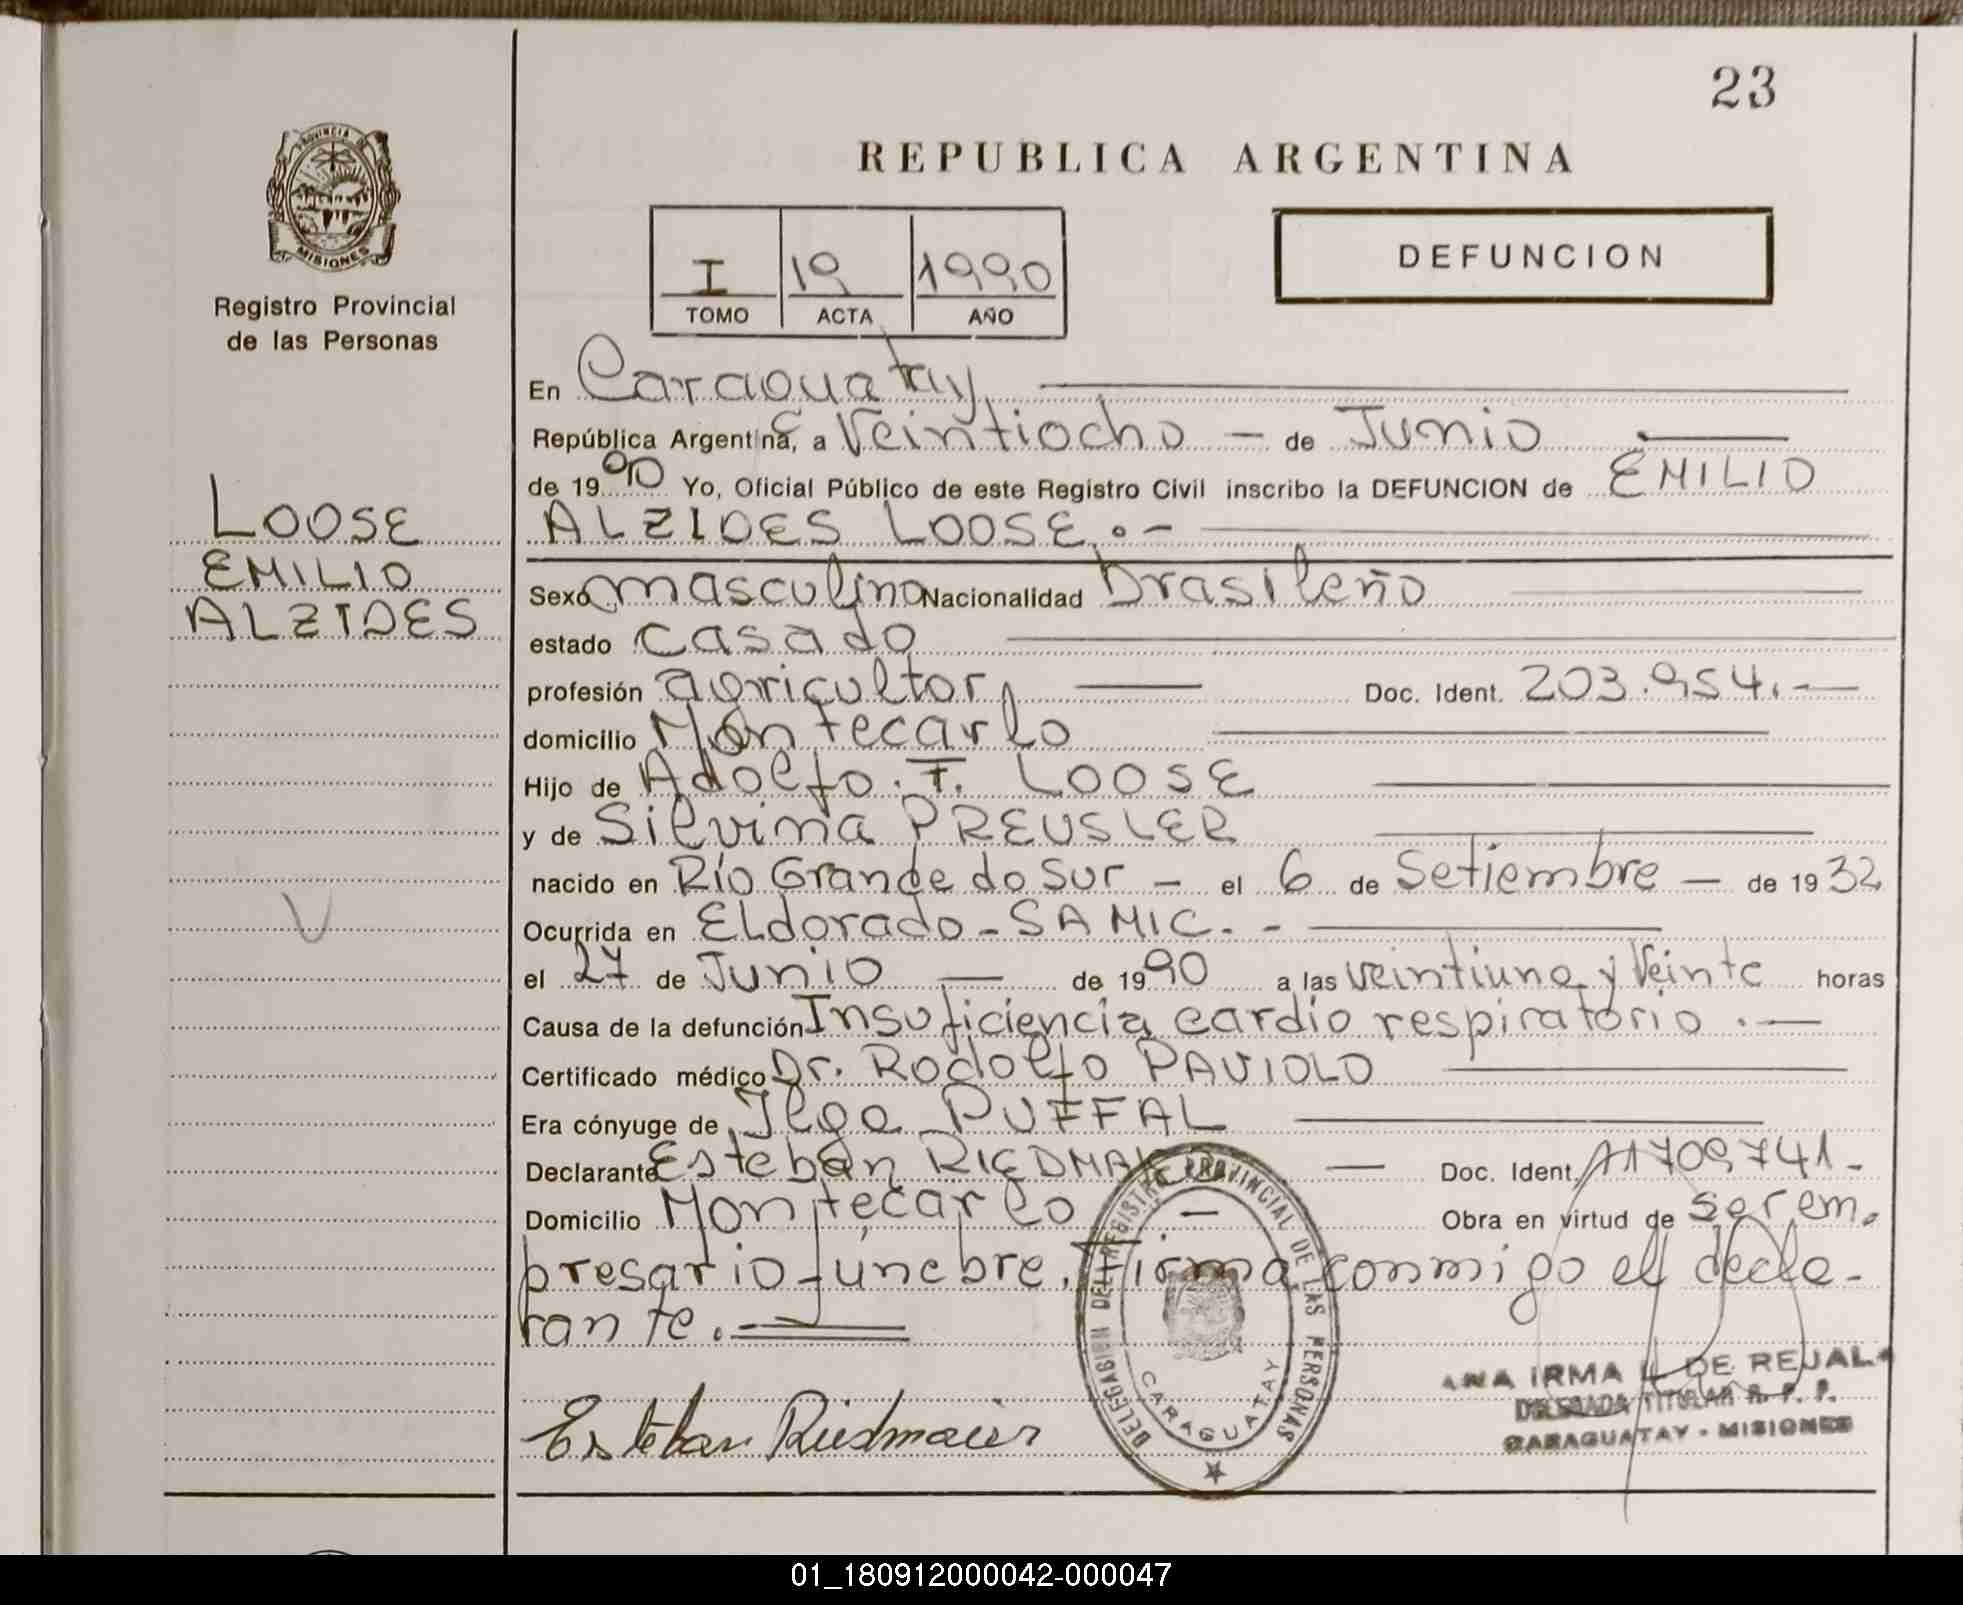 23
REPUBLICA ARGENTINA
PROVINCIA DE
MISIONES
Registro Provincial
de las Personas
I 19 1990
TOMO ACTA AÑO
DEFUNCION
LOOSE
EMILIO
ALZIDES
En Caraguatay
República Argentina, a Veintiocho - de Junio
de 1990 Yo, Oficial Público de este Registro Civil inscribo la DEFUNCION de EMILIO
ALZIDES LOOSE.-
Sexo masculino Nacionalidad brasileño
estado casado
profesión agricultor Doc. Ident. 203.954.-
domicilio Montecarlo
Hijo de Adolfo.F. LOOSE
y de Silvina PREUSLER
nacido en Río Grande do Sur - el 6 de Setiembre - de 1932
Ocurrida en Eldorado-SAMIC.-
el 27 de Junio - de 1990 a las veintiuna y Veinte horas
Causa de la defunción Insuficiencia cardio respiratorio.-
Certificado médico Dr. Rodolfo PAVIOLO
Era cónyuge de Ilga PUFFAL
Declarante Esteban RIEDMAIER - Doc. Ident. 11709741-
Domicilio Montecarlo - Obra en virtud de ser em.
presario fúnebre. Firma conmigo el decla-
rante.
DELEGACION DEL REGISTRO PROVINCIAL DE LAS PERSONAS
CARAGUATAY
Esteban Riedmaier
ANA IRMA L DE REJALA
DELEGADA TITULAR R. P. P.
CARAGUATAY - MISIONES
01_180912000042-000047